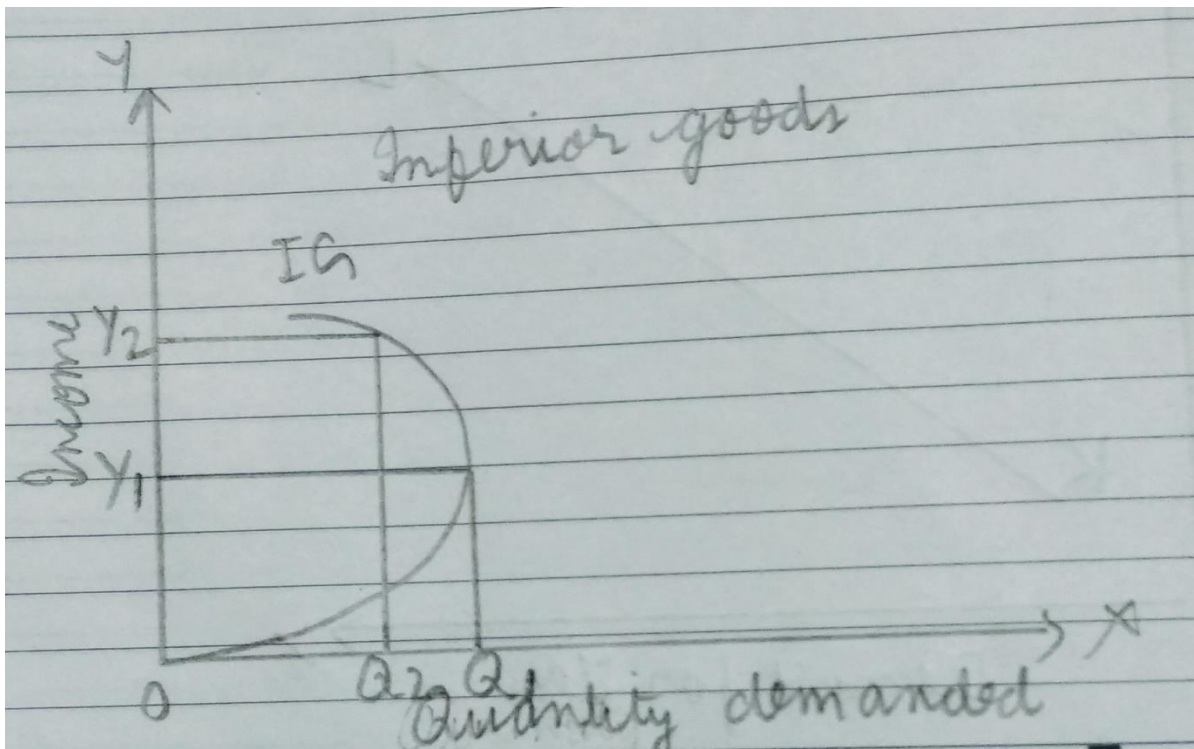 Y
Inferior goods
IG
Income
Y2
Y1
O
Q2
Q1
X
Quantity demanded